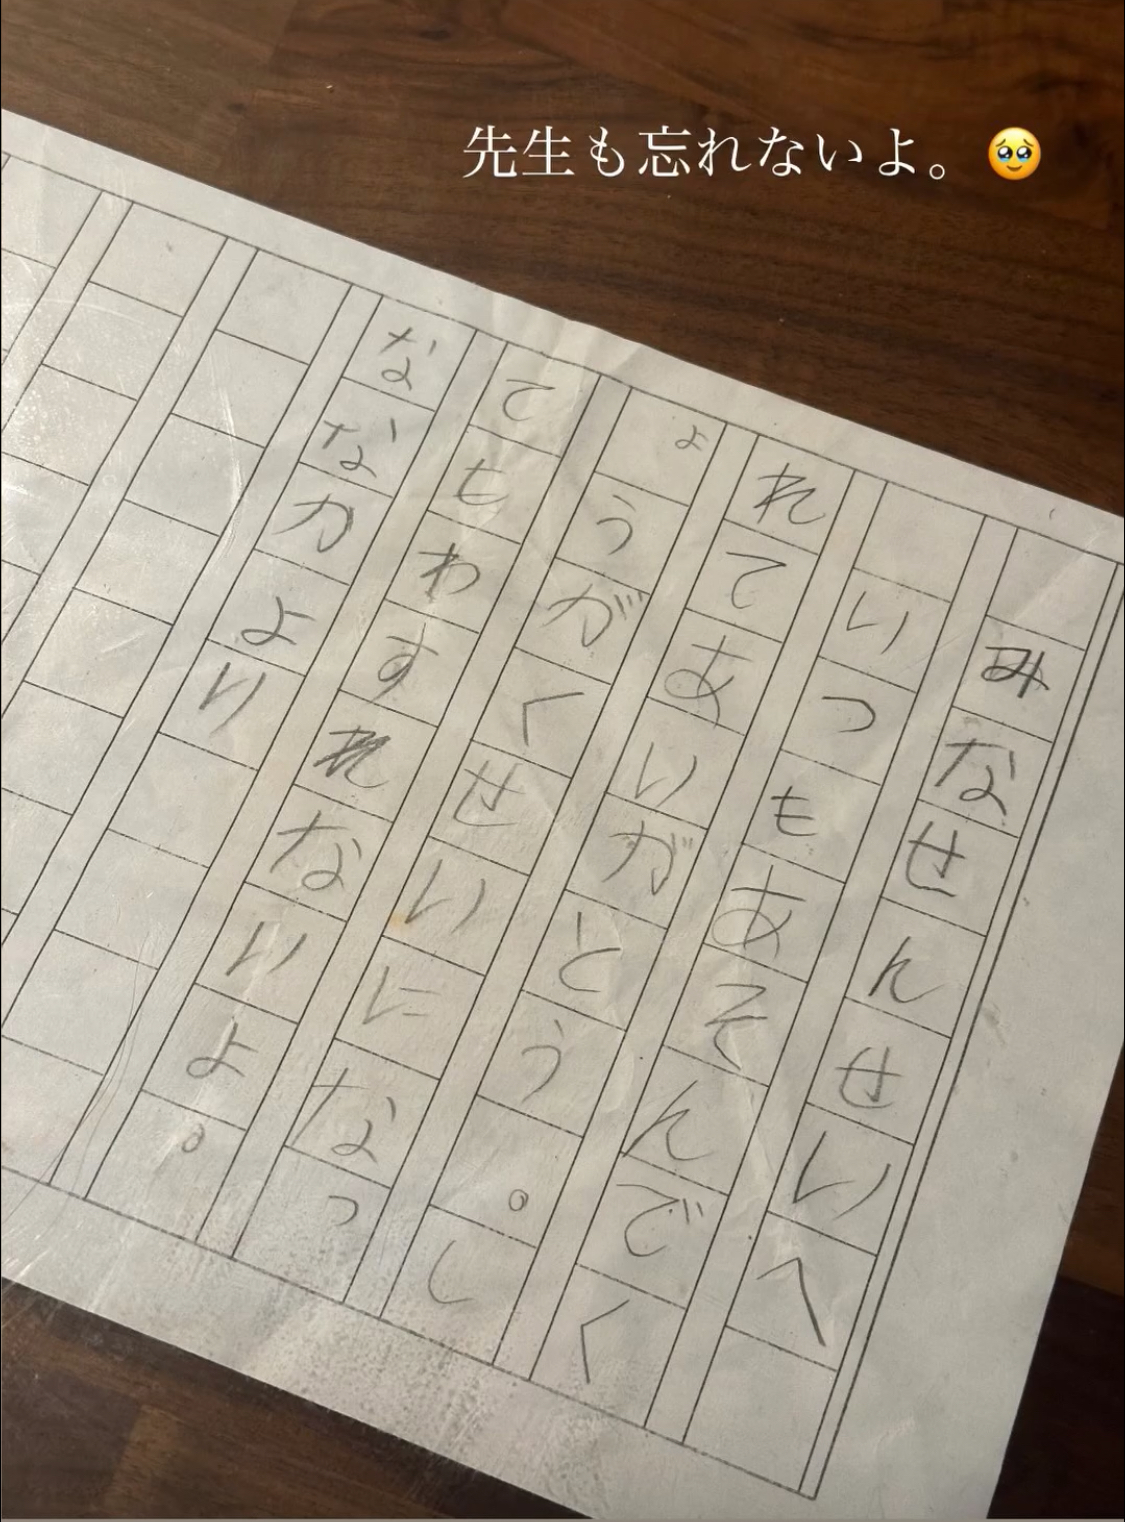 先生も忘れないよ。🥹
みなせんせいへ
いつもあそんでく
れてありがとう。し
ょうがくせいになっ
てもわすれないよ。
ななかより